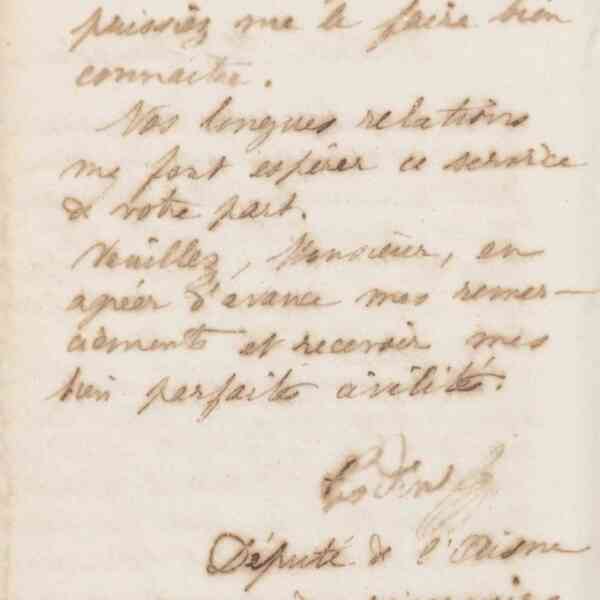 puissiez me le faire bien
connaître.
Nos longues relations
me font espérer ce service
de votre part.
Veuillez, Monsieur, en
agréer d'avance mes remer-
ciements et recevoir mes
bien parfaites civilités.
Député de l'Aisne